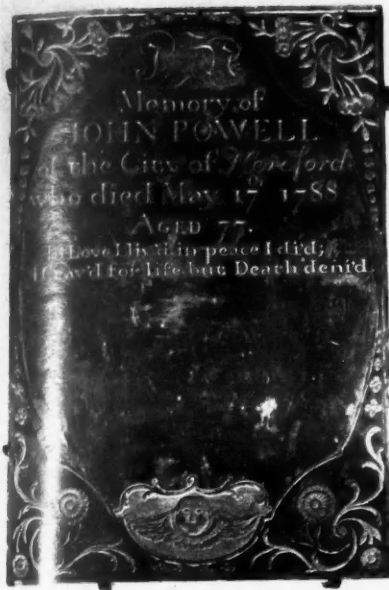 In
Memory of
JOHN POWELL
of the City of Hereford
who died May 17th 1788
AGED 77.
In Love I liv'd, in peace I di'd;
I crav'd for Life but Death deni'd.